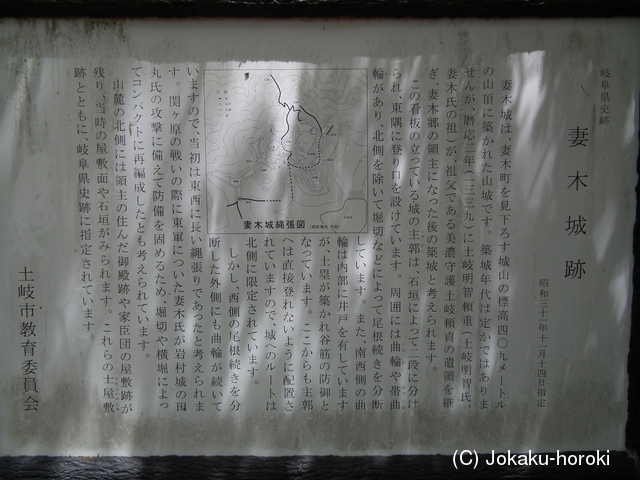 岐阜県史跡
妻木城跡
昭和三十一年十一月十四日指定
妻木城は、妻木町を見下ろす城山の標高四〇九メートル
の山頂に築かれた山城です。築城年代は定かではありま
せんが、暦応二年(一三三九)に土岐明智頼重(土岐明智氏、
妻木氏の祖)が、祖父である美濃守護土岐頼貞の遺領を継
ぎ、妻木郷の領主になった後の築城と考えられます。
この看板の立っている城の主郭は、石垣によって二段に分け
られ、東隅に登り口を設けています。周囲には曲輪や帯曲
輪があり、北側を除いて堀切などによって尾根続きを分断
しています。また、南西側の曲
輪は内部に井戸を有しています
が、土塁が築かれ谷筋の防御と
なっています。ここからも主郭
へは直接登れないように配置さ
れていますので、城へのルートは
北側に限定されています。
しかし、西側の尾根続きを分
断した外側にも曲輪が続いて
いますので、当初は東西に長い縄張りであったと考えられま
す。関ヶ原の戦いの際に東軍についた妻木氏が岩村城の田
丸氏の攻撃に備えて防備を固めるため、堀切や横堀によっ
てコンパクトに再編成したとも考えられています。
山麓の北側には領主の住んだ御殿跡や家臣団の屋敷跡が
残り、当時の屋敷面や石垣がみられます。これらの士屋敷
跡とともに、岐阜県史跡に指定されています。
土岐市教育委員会
妻木城縄張図
(C) Jokaku-horoki